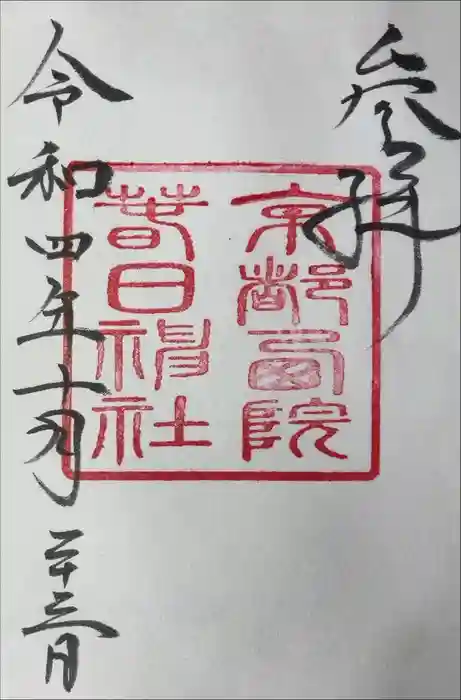 参拝
京都西院
春日神社
令和四年十月二十三日